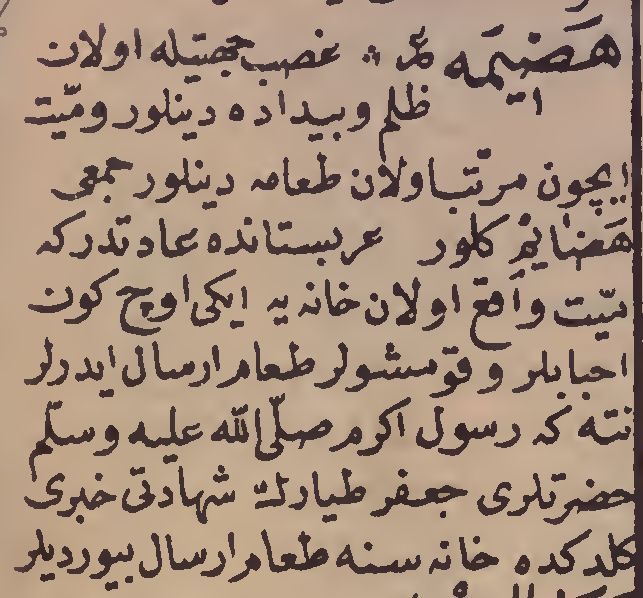 هَضِيمَه غصب جهتيله اولان
ظلم و بيداده دينلور و ميّت
ايچون مرتّب اولان طعامه دينلور جمعى
هَضَائِم كلور عربستانده عادتدر كه
ميّت واقع اولان خانه يه ايكى اوچ كون
احبابلر و قوشولر طعام ارسال ايدرلر
نته كه رسول اكرم صلّى الله عليه وسلّم
حضرتلرى جعفر طيارك شهادتى خبرى
كلدكده خانه سنه طعام ارسال بيورديلر